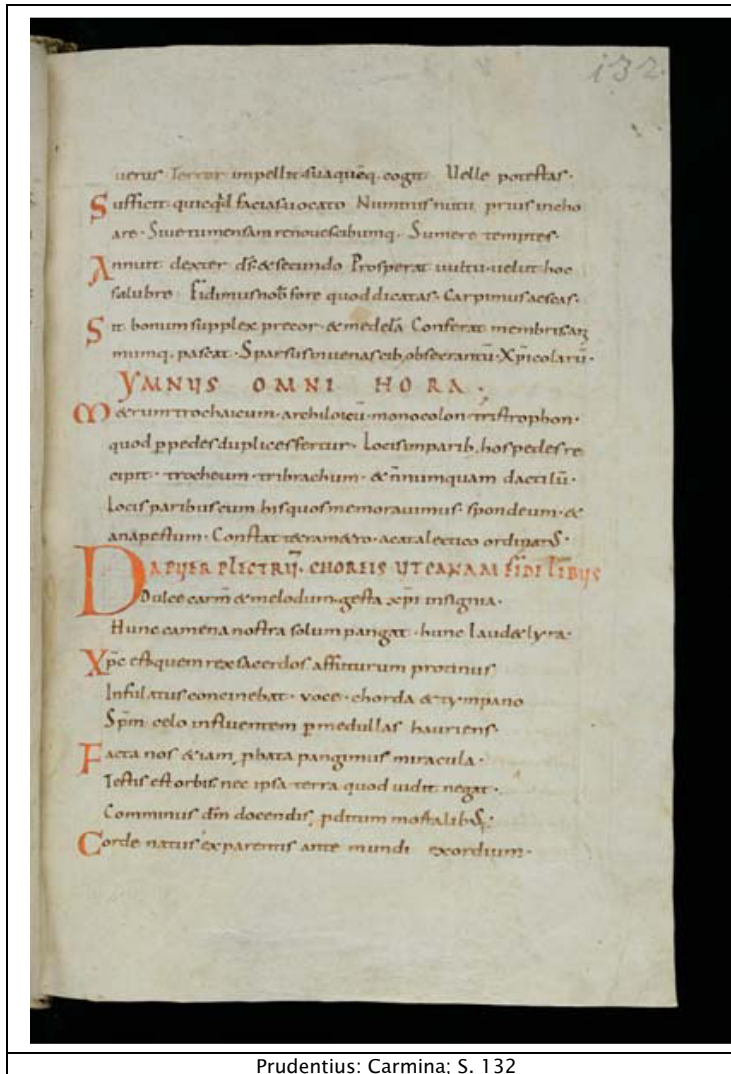 132.
uerus Terror impellit suaquēq. cogit Uelle potestas·
Sufficit quicqđ facias uocato Numinis nutu prius incho
are· Siue tu mensam renoues cibumq. Sumere temptes·
Annuit dexter đs· & secundo Prosperat uultu· uelut hoc
salubre Fidimus nob̄ fore quod dicatas· Carpimus aescas·
Sit bonum supplex precor· & medelā Conferat membris
mumq. pascat· Sparsus in uenas cib, obsecrantū· Xp̄icolarū·
YMNUS OMNI HORA·
M&rum trochaicum· archiloicū· monocolon· tristrophon·
quod p̱ pedes duplices fertur· Locis imparib, hos pedes re
cipit· trocheum· tribrachum· & n̄numquam dactilū·
Locis paribus cum his quos memorauimus· spondeum· &
anapestum· Constat t&ram&ro· acatalectico ordinat
DA PUER PLECTRŪ· CHOREIS UT CANAM FIDELIBUS
Dulce carm̄ & melodum· gesta xp̄i insignia·
Hunc camena nostra solum pangat· hunc laud& lyra·
Xp̄c est quem rex sacerdos affuturum protinus
Infulatus concinebat· uoce· chorda & tympano
Sp̄m celo influentem p̱ medullas hauriens·
Facta nos &iam, pbata pangimus miracula·
Testis est orbis nec ipsa terra quod uidit negat·
Comminus dm̄ docendis, pditum mortalib;
Corde natus ex parentis ante mundi exordium·
Prudentius: Carmina; S. 132